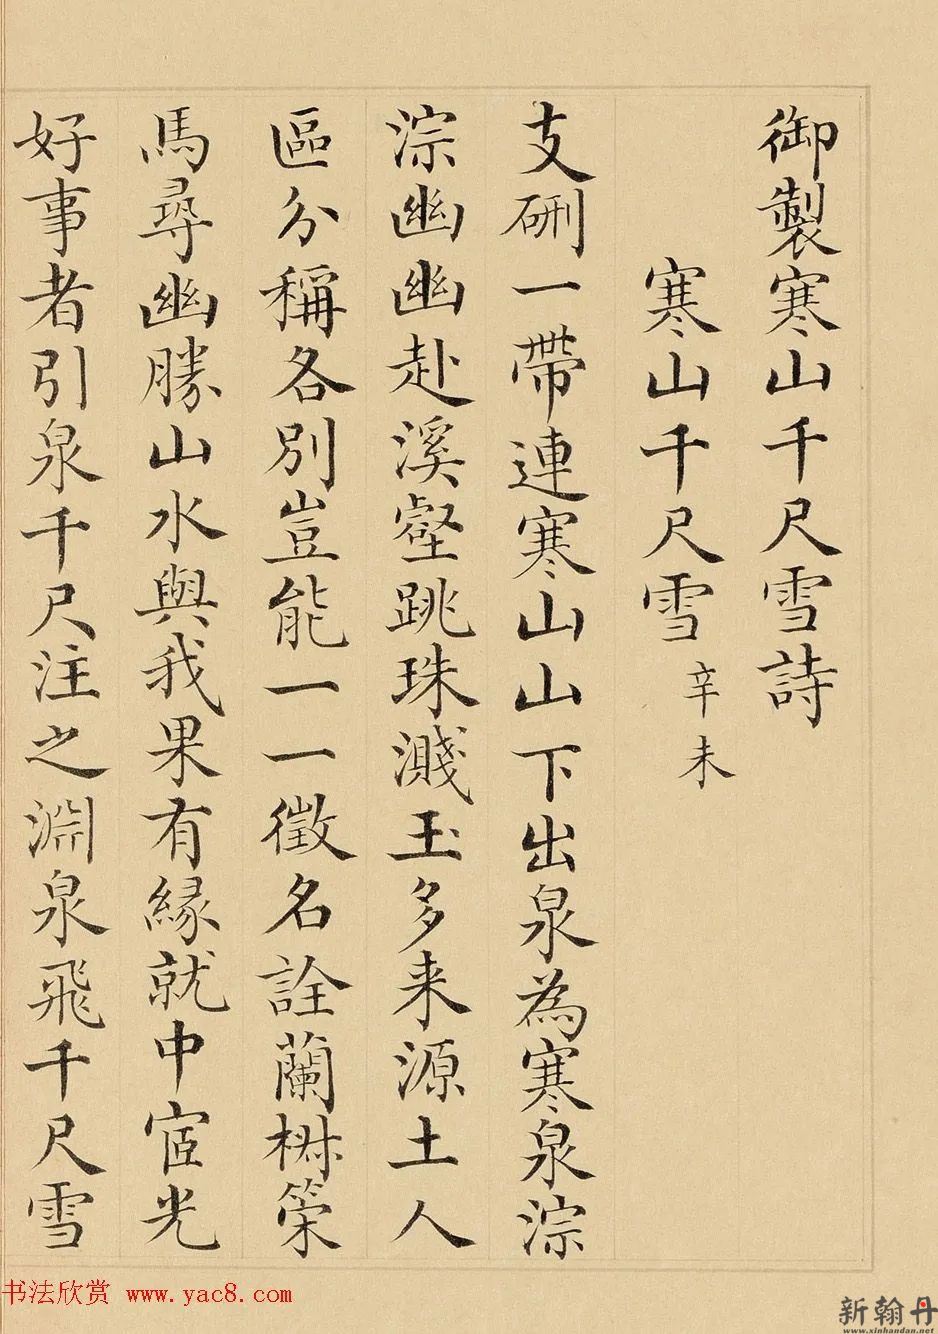 御製寒山千尺雪詩
寒山千尺雪 辛未
支硎一帶連寒山山下出泉為寒泉淙
淙幽幽赴溪壑跳珠濺玉多来源土人
區分稱各別豈能一一徵名詮蘭椒策
馬尋幽勝山水與我果有緣就中宧光
好事者引泉千尺注之淵泉飛千尺雪
书法欣赏 www.yac8.com
新翰丹
www.xinhandan.net